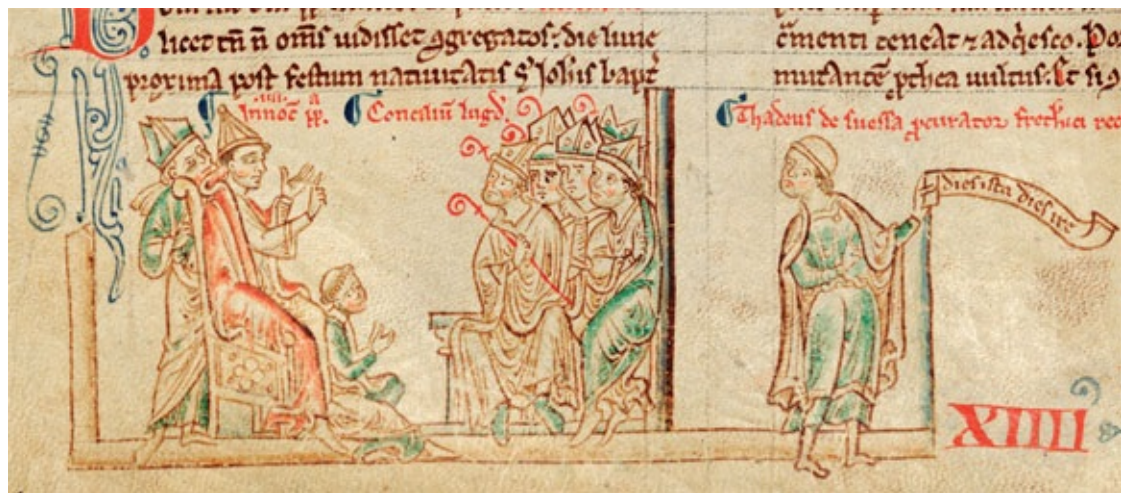 licet tn̄ n̄ om̄s uidisset ꝯgregatos: die lune
proxima post festum natiuitatis S' Ioh̄is bapt̄
c̄menti teneat ⁊ adq̇esco. Po
mutantē uultus. Et si
.iiii. a
Innoc̄ pp.
Conciliū lugd̄.
Thadeus de suessa ꝓcurator freth'ici
dies ista dies ire
XIIII